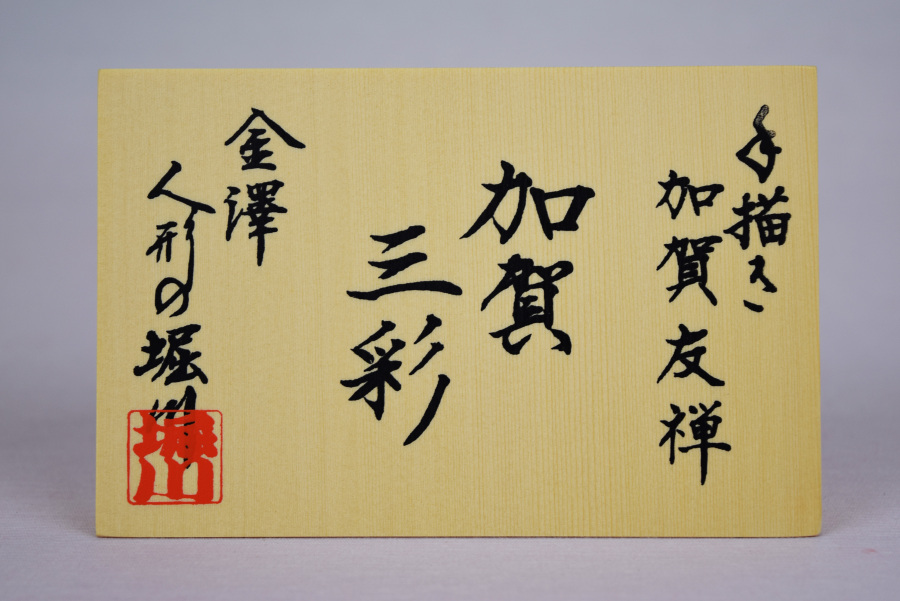 手描き
加賀友禅
加賀
三彩
金澤
人形の堀川
堀川